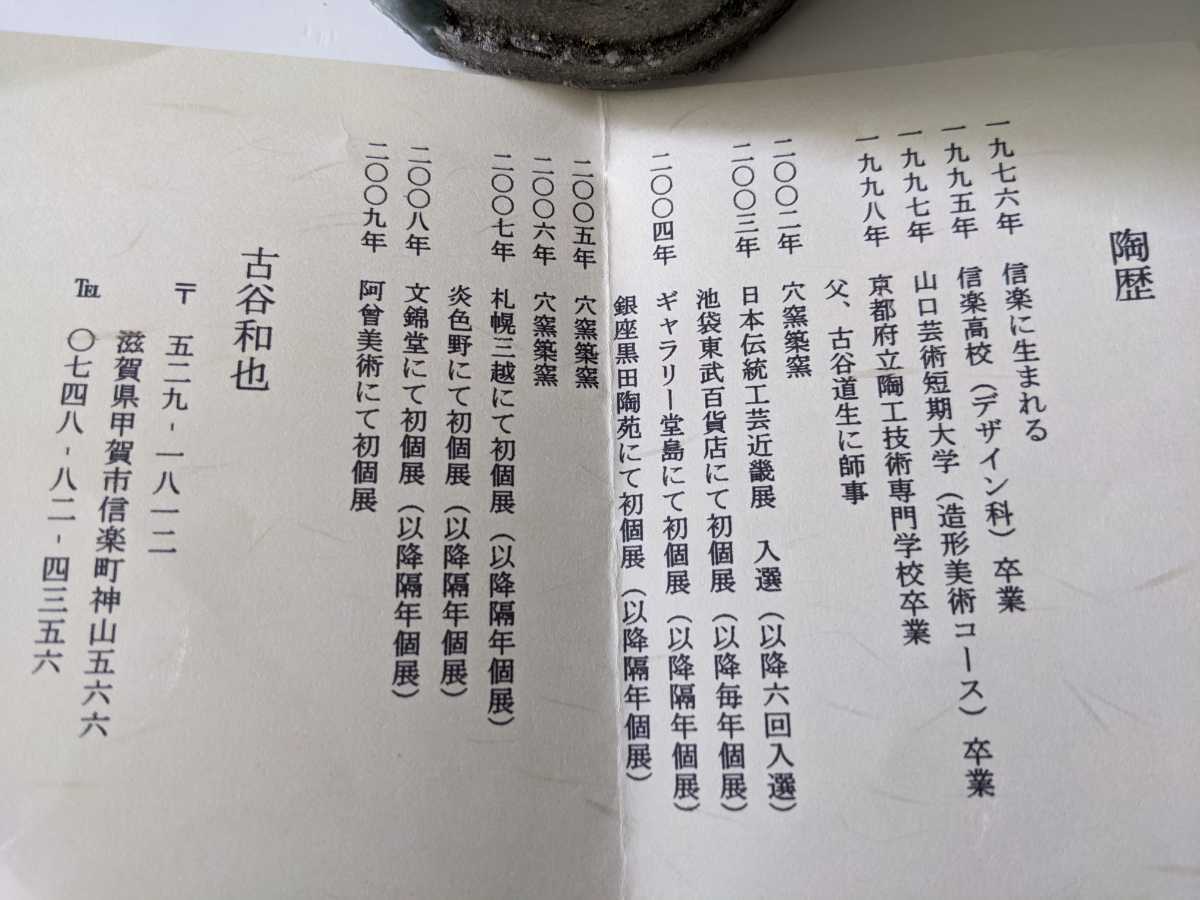 陶歴
一九七六年 信楽に生まれる
一九九五年 信楽高校（デザイン科）卒業
一九九七年 山口芸術短期大学（造形美術コース）卒業
一九九八年 京都府立陶工技術専門学校卒業
父、古谷道生に師事
二〇〇二年 穴窯築窯
二〇〇三年 日本伝統工芸近畿展 入選（以降六回入選）
池袋東武百貨店にて初個展（以降毎年個展）
二〇〇四年 ギャラリー堂島にて初個展（以降隔年個展）
銀座黒田陶苑にて初個展（以降隔年個展）
二〇〇五年 穴窯築窯
二〇〇六年 穴窯築窯
二〇〇七年 札幌三越にて初個展（以降隔年個展）
炎色野にて初個展（以降隔年個展）
二〇〇八年 文錦堂にて初個展（以降隔年個展）
二〇〇九年 阿曾美術にて初個展
古谷和也
〒 五二九-一八一二
滋賀県甲賀市信楽町神山五六六
℡ 〇七四八-八二-四三五六